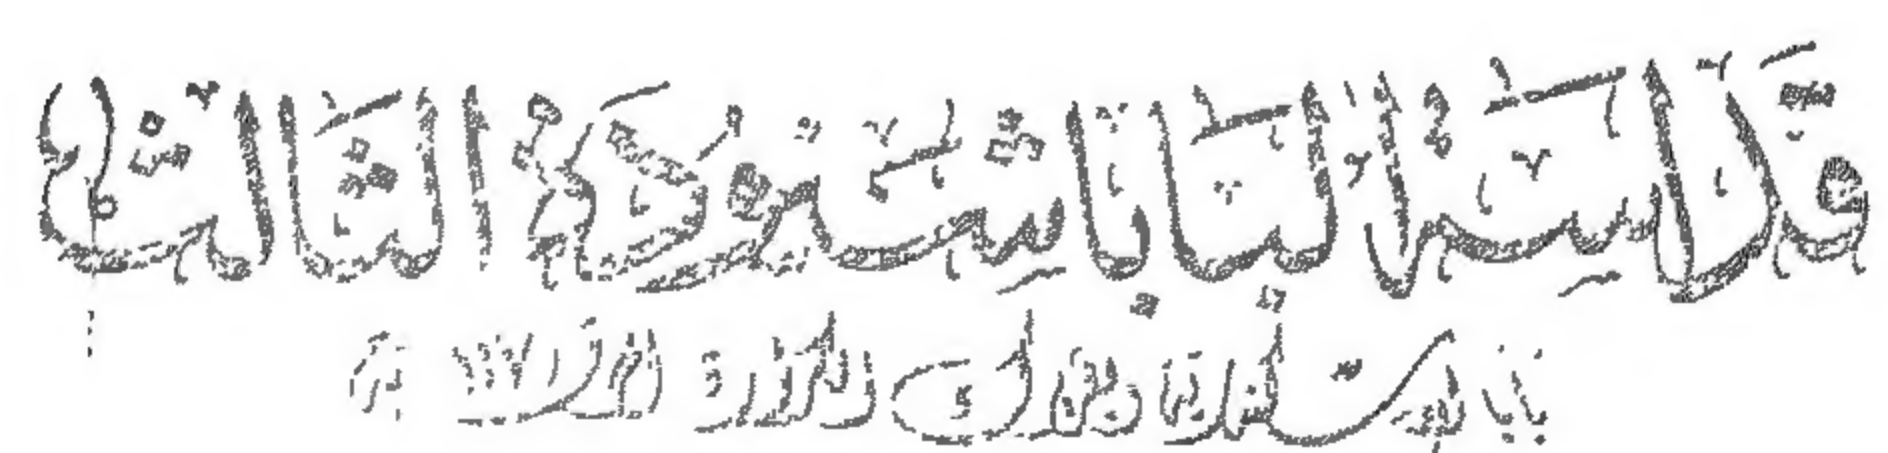 قداسة البابا شنوده الثالث
بابا الإسكندرية وبطريرك الكرازة المرقسية